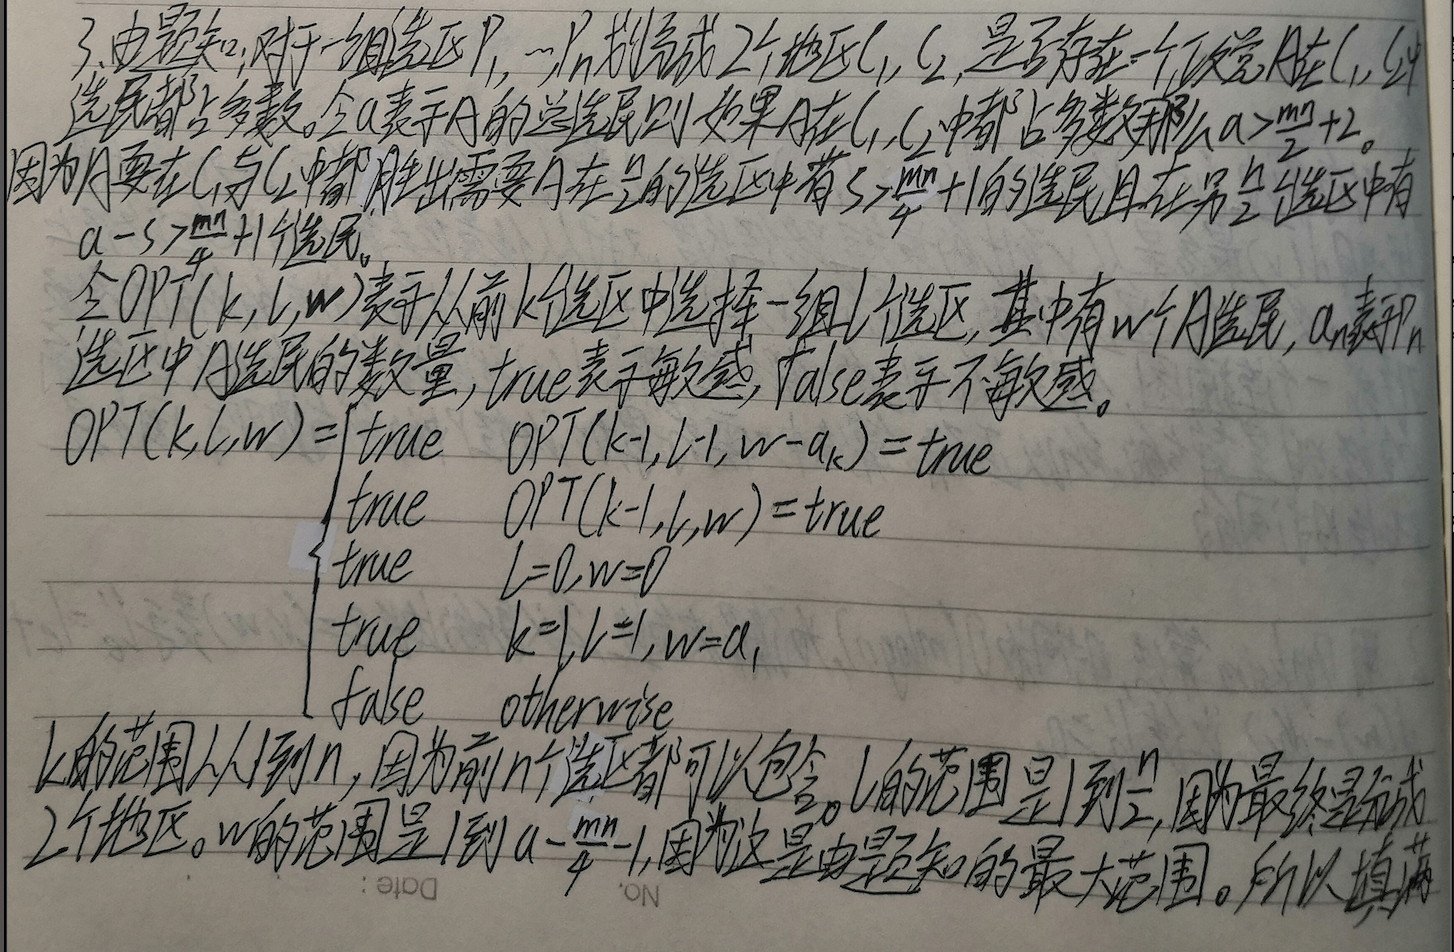 3.由题知,对于一组选区P₁,…,Pₙ划分成2个地区C₁,C₂,是否存在一个政党A在C₁,C₂中
选民都占多数。令a表示A的总选民则如果A在C₁,C₂中都占多数那么a>mn/2+2。
因为A要在C₁与C₂中都胜出需要A在n/2的选区中有s>mn/4+1的选民且在另n/2个选区中有
a-s>mn/4+1个选民。
令OPT(k,l,w)表示从前k个选区中选择一组l个选区,其中有w个A选民,aₙ表示Pₙ
选区中A选民的数量,true表示敏感,false表示不敏感。
OPT(k,l,w)={true OPT(k-1,l-1,w-aₖ)=true
true OPT(k-1,l,w)=true
true l=0,w=0
true k=1,l=1,w=a₁
false otherwise
k的范围从1到n,因为前n个选区都可以包含。l的范围是1到n/2,因为最终是分成
2个地区。w的范围是1到a-mn/4-1,因为这是由题知的最大范围。所以填满
No. Date: